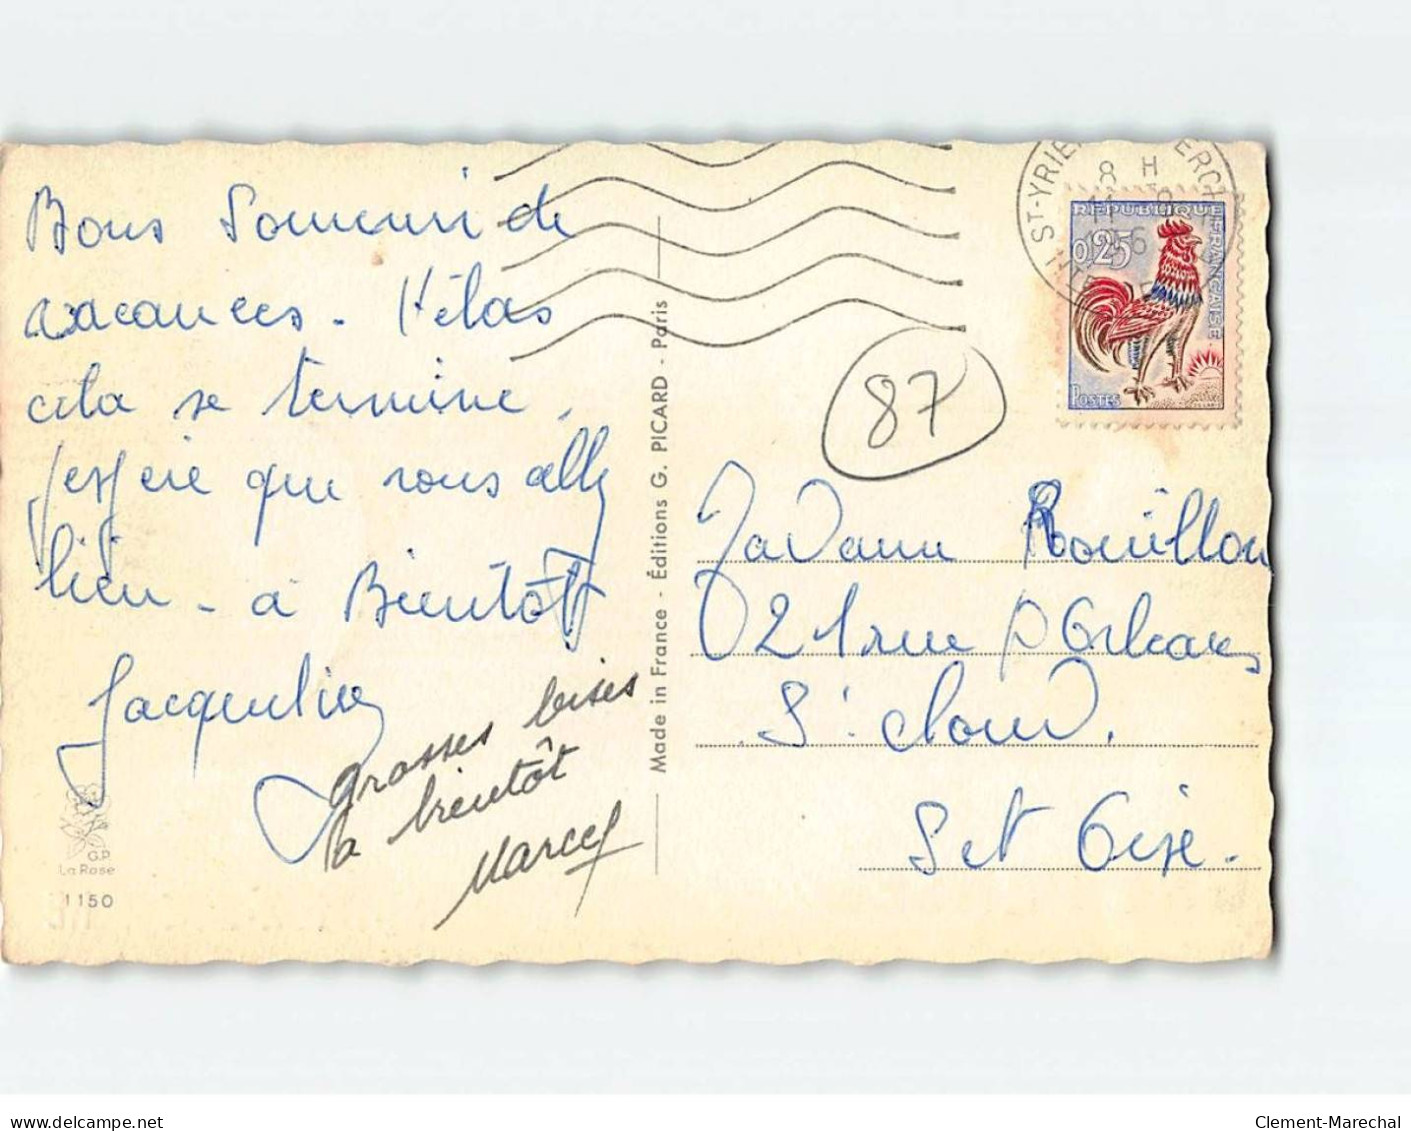 Bons Souvenir de
vacances. Hélas
cela se termine.
J'espère que vous allez
bien - à Bientôt
Jacqueline
grosses bises
a bientôt
Marcel
G.P.
La Rose
1150
Made in France - Éditions G. PICARD - Paris
87
ST-YRIE ERCHE
8 H
REPUBLIQUE FRANÇAISE
0,25
POSTES
Rouillon
21 rue D Orleans
St Cloud.
S et Oise.
delcampe.net
Clement-Marechal